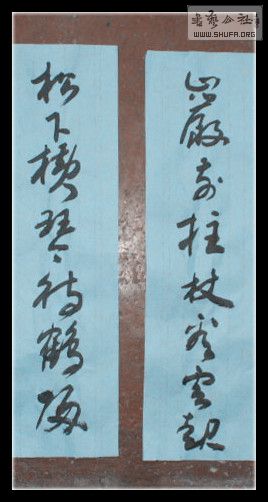 書藝公社
WWW.SHUFA.ORG
巖前拄杖看雲起
松下橫琴待鶴歸